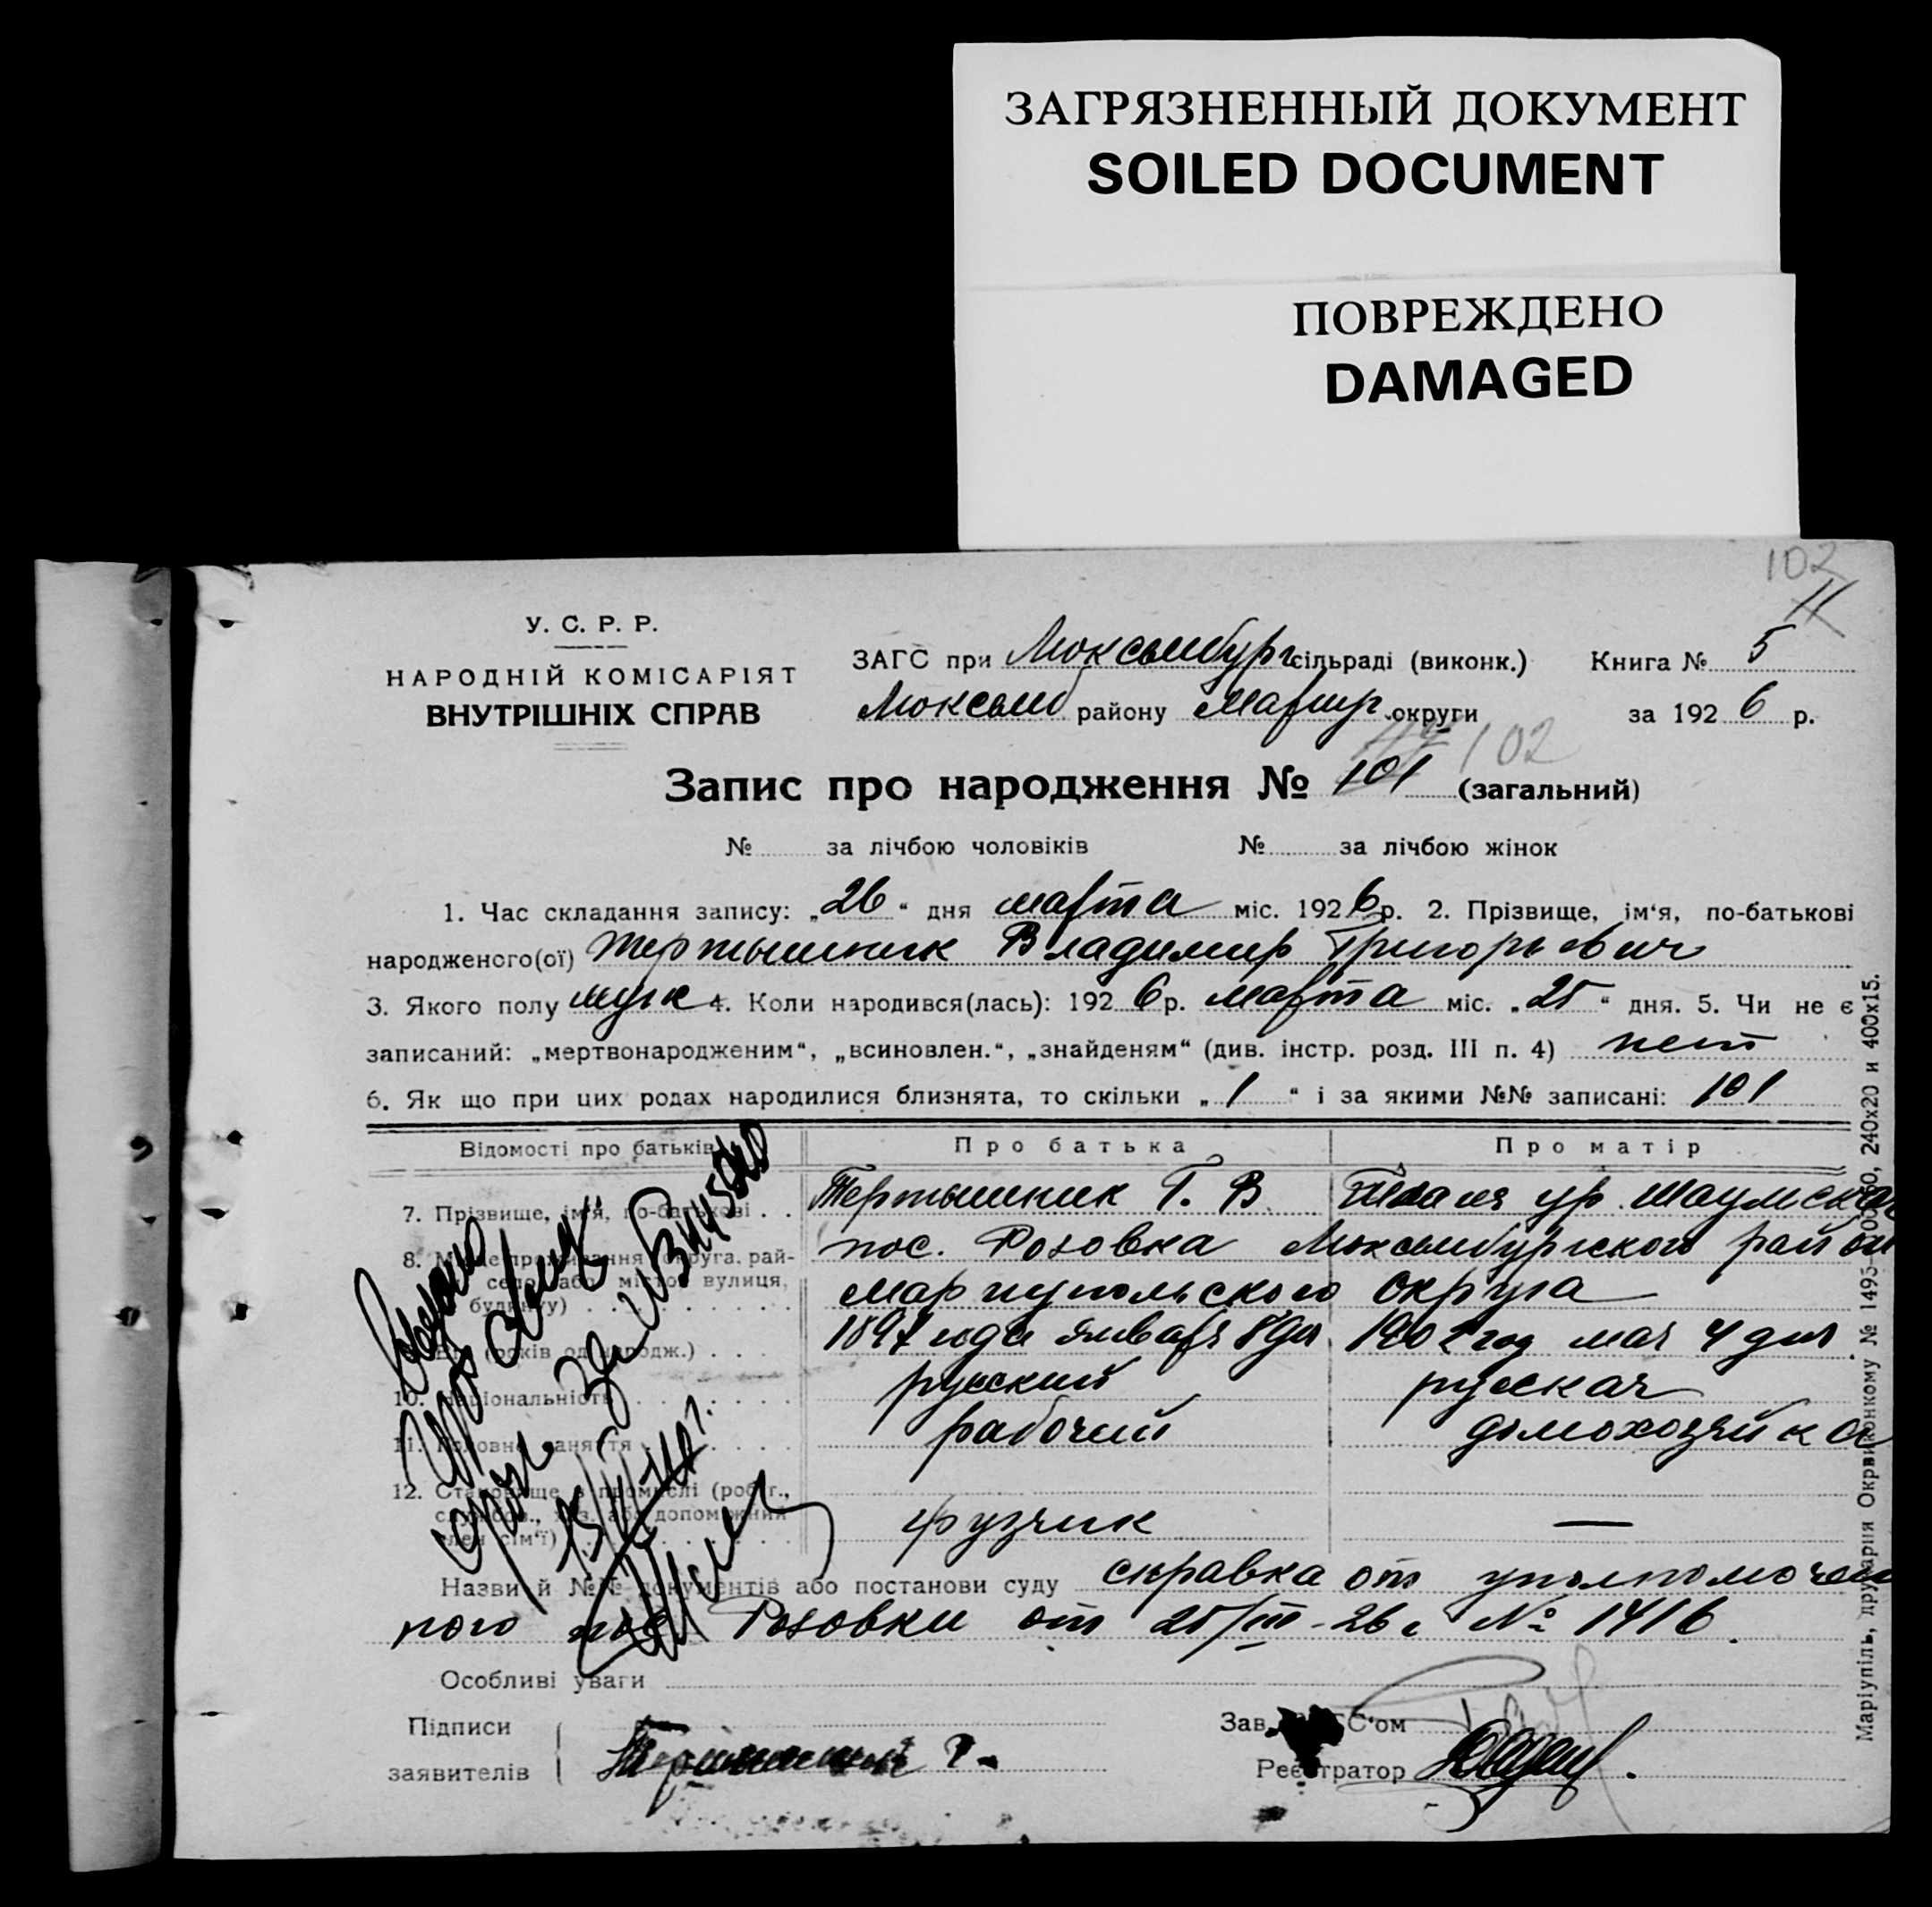 ЗАГРЯЗНЕННЫЙ ДОКУМЕНТ
SOILED DOCUMENT
ПОВРЕЖДЕНО
DAMAGED
102
11
У. С. Р. Р.
НАРОДНІЙ КОМІСАРІЯТ
ВНУТРІШНІХ СПРАВ
ЗАГС при Люксембург сільраді (виконк.) Книга № 5
Люксемб району Мариуп округи за 1926 р.
102
Запис про народження № 101 (загальний)
№ за лічбою чоловіків № за лічбою жінок
1. Час складання запису: „26“ дня марта міс. 1926 р. 2. Прізвище, ім‘я, по-батькові
народженого(ої) Тертышник Владимир Григорьевич
3. Якого полу муж 4. Коли народився(лась): 1926 р. марта міс. „25“ дня. 5. Чи не є
записаний: „мертвонародженим“, „всиновлен.“, „знайденям“ (див. інстр. розд. III п. 4) нет
6. Як що при цих родах народилися близнята, то скільки „1“ і за якими №№ записані: 101
Відомості про батьків Про батька Про матір
7. Прізвище, ім‘я, по-батькові Тертышник Г. В. ур.
8. Місце проживання (округа, рай- пос. Розовка Люксембургского район
село або місто, вулиця, Мариупольского округа
будинку)
(років од народж.) 1897 года января 8 дня 1902 год мая 4 дня
10. Національність русский русская
11. Головне заняття рабочий домохозяйка
12. Становище в промислі (робіт.,
службов., хаз. або допоміжний
член сім‘ї) грузчик —
Назви й №№ документів або постанови суду справка от уполномочен
ного пос Розовки от 25/III-26 г № 1416.
Особливі уваги
Підписи Зав. ЗАГС‘ом
заявителів Тертышник Г. Реєстратор
Маріупіль, друкарня Окрвиконкому № 1495-10050, 240х20 и 400х15.